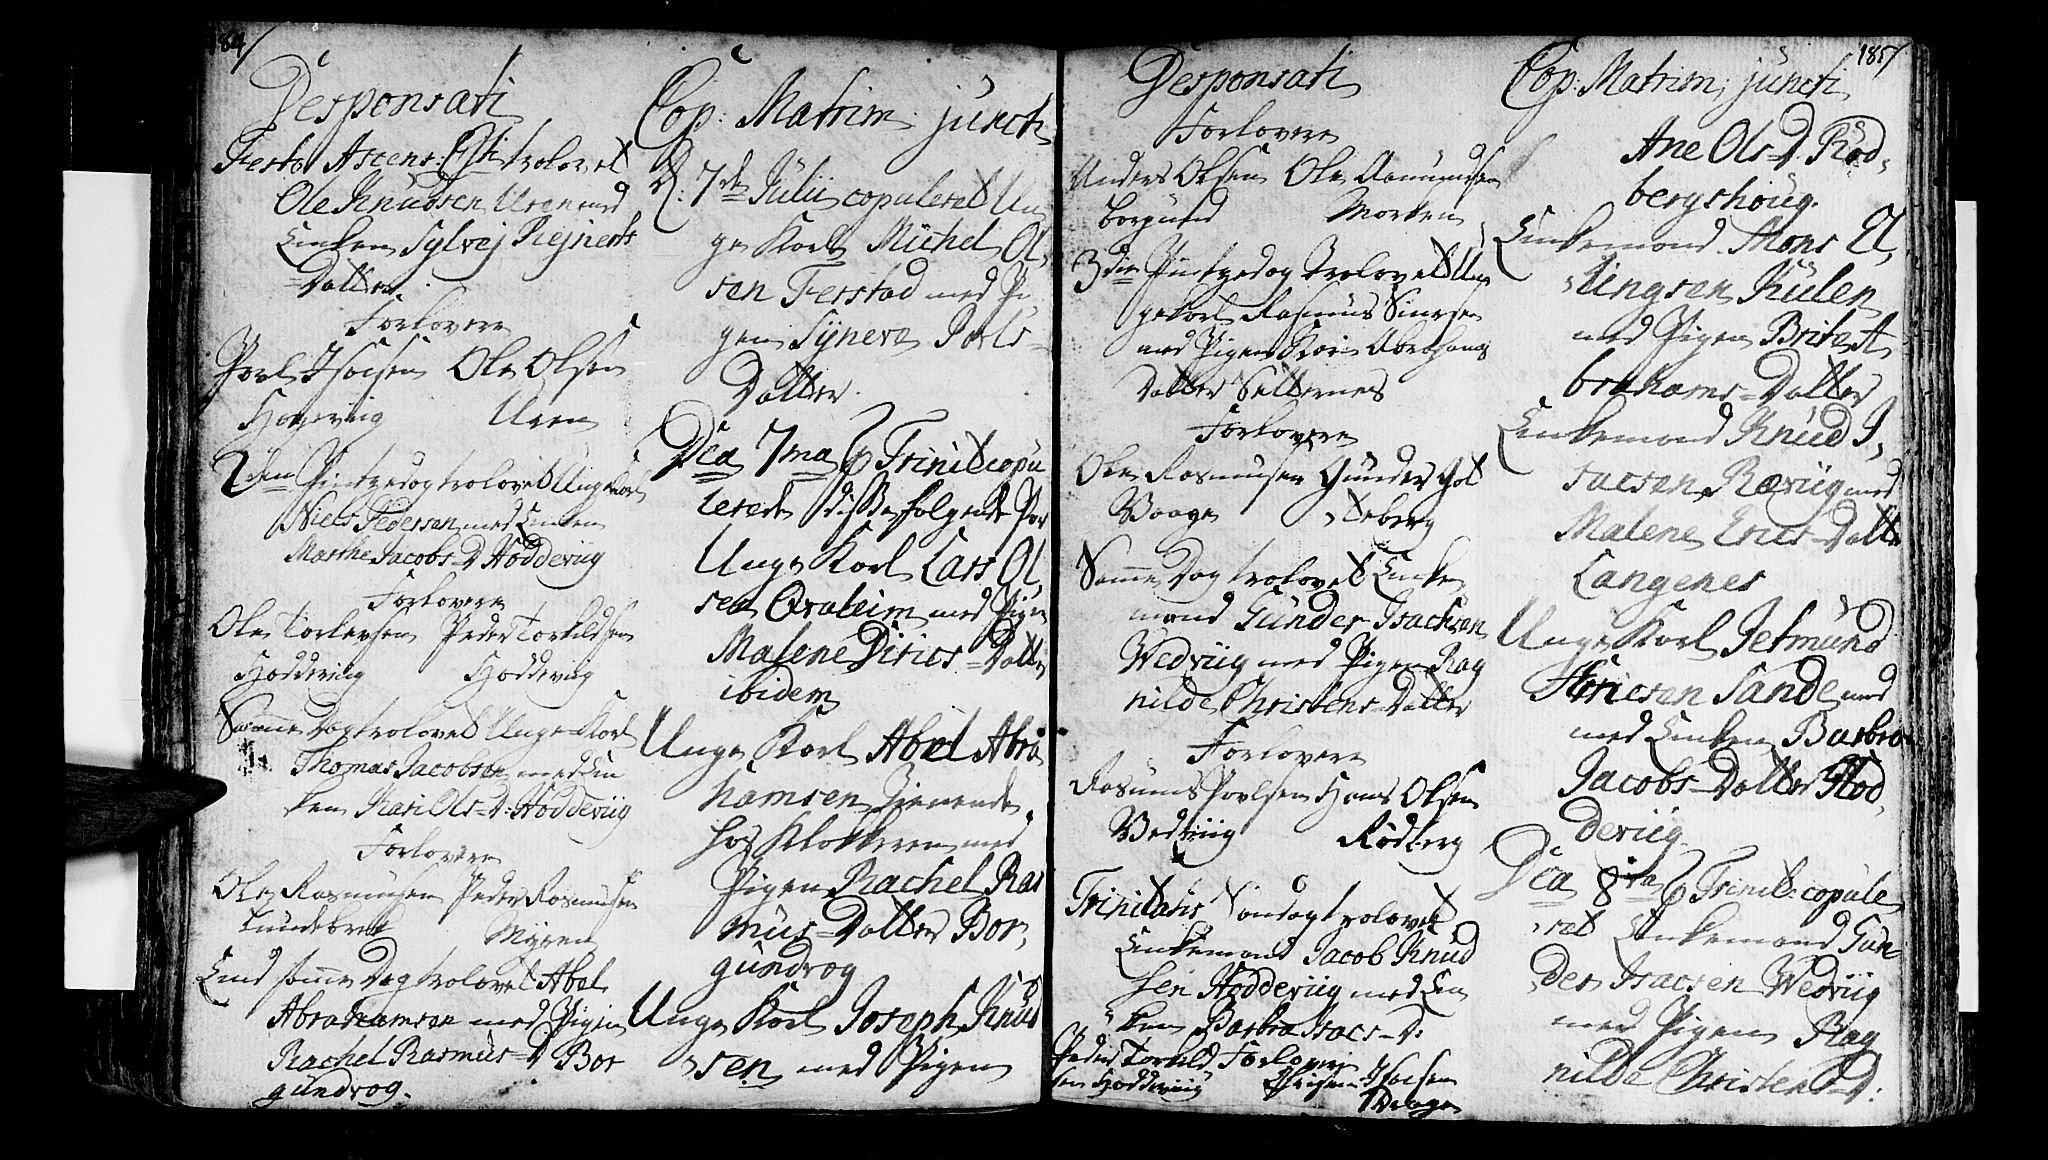 184/
Desponsati
Festo Ascens: Xsti trolovet
Ole Knudsen Uren med
Enken Sylvej Rejnerts
Datter
Forlovere
Povl Isacsen Ole Olsen
Uren
2den Pintzedag trolovet Unge Karl
Niels Pedersen med Enken
Marthe Jacobs=D Hoddeviig
Forlovere
Ole Torlevsen Peder Torkildsen
Hoddeviig Hoddeviig
Samme Dag trolovet Unge Karl
Thomas Jacobsen med En
ken Kari Ols=D: Hoddeviig
Forlovere
Ole Rasmusen Peder Rasmusen
Tundebret Myren
End samme Dag trolovet Abel
Abrahamsen med Pigen
Rachel Rasmus=D Bor
gundvog.
Cop: Matrim: juncti
D: 7de Julii copuleret Un
ge Karl Michel Ol
sen Ferstad med Pi
gen Syneve Povls=
Datter.
Dca 7ma p Trinit copu
lerede disse følgende Par
Unge Karl Lars Ol,
sen Ervieim med Pigen
Malene Dirics=Datter
ibidem
Unge Karl Abel Abra
hamsen tienende
hos Klokkeren med
Pigen Rachel Ras
mus=Datter Bor,
gundvog
Unge Karl Joseph Knud
sen med Pigen
185/
Desponsati
Forlovere
Anders Olsen Ole Asmundsen
Borgund Morken
3die Pintzedag trolovet Un
gekarl Rasmus Siursen
med Pigen Kari Abrahams
Datter Salternes
Forlovere
Ole Rasmusen Gunder Got
Vaage teberg
Samme Dag trolovet Enke
mand Gunder Isachsen
Wedviig med Pigen Rag
nilde Christens=Datter
Forlovere
Rasmus Povlsen Hans Olsen
Vedviig Rødberg
Trinitatis Søndag trolovet
Enkemand Jacob Knud
sen Hoddeviig med En
ken Barbra Isacs=D:
Peder Torkild Forlovere Isacsen
sen Hoddeviig Drage
Cop: Matrim: juncti
Ane Ols=D. Rød,
bergshoug.
Enkemand Mons El,
lingsen Kulen
med Pigen Brite A
brahams=Datter
Enkemand Knud I,
sacsen Ræviig med
Malene Erics=Datter
Langenes
Unge Karl Jetmund
Ericsen Sande med
med Enken Barbra
Jacobs=Datter Hod,
deviig.
Dca 8va p Trinit: copule
ret Enkemand Gun
der Isacsen Wedviig
med Pigen Rag
nilde Christens=D: